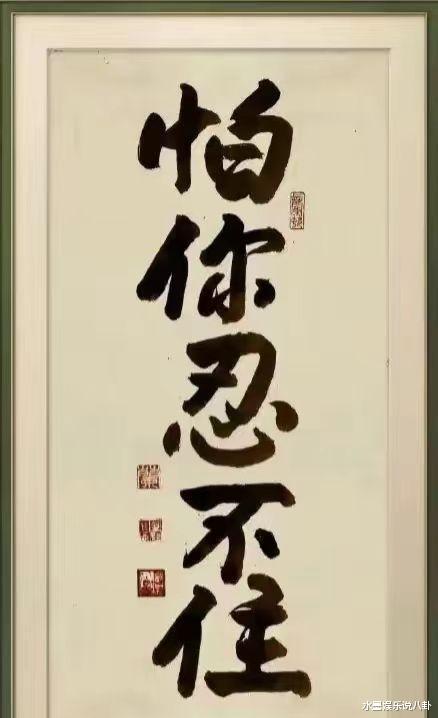 怕你忍不住
水星娱乐说八卦